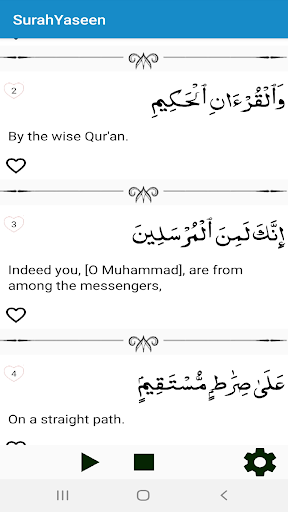 SurahYaseen
2
وَٱلْقُرْءَانِ ٱلْحَكِيمِ
By the wise Qur'an.
3
إِنَّكَ لَمِنَ ٱلْمُرْسَلِينَ
Indeed you, [O Muhammad], are from
among the messengers,
4
عَلَىٰ صِرَٰطٍ مُّسْتَقِيمٍ
On a straight path.